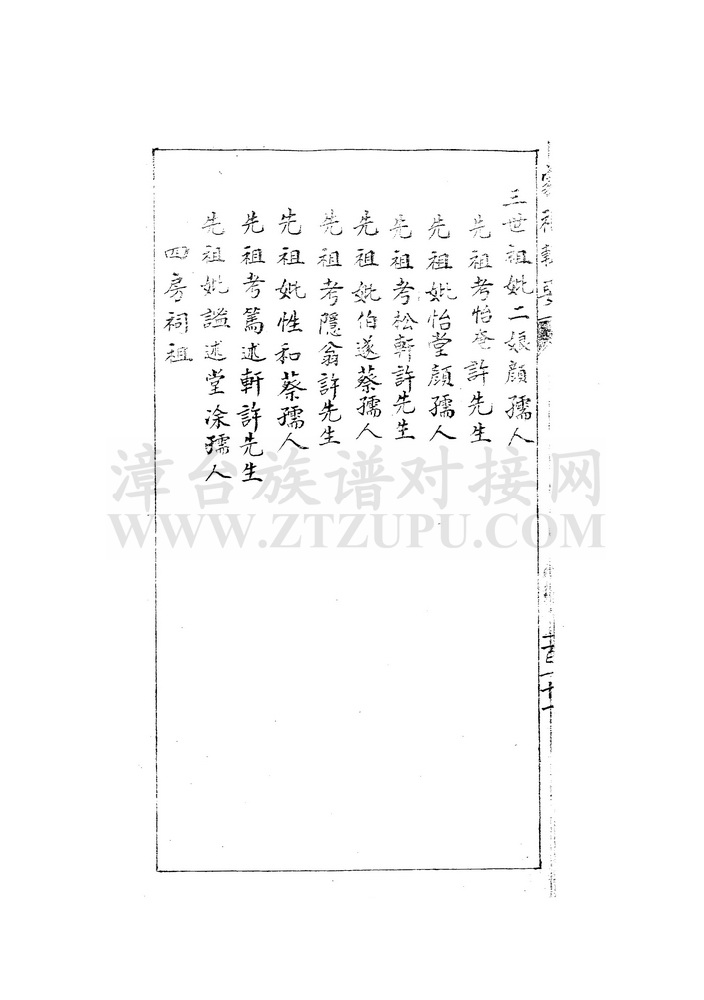 三世祖妣二娘顏孺人
先祖考怡菴許先生
先祖妣怡堂顏孺人
先祖考松軒許先生
先祖妣伯遂蔡孺人
先祖考隱翁許先生
先祖妣性和蔡孺人
先祖考篤述軒許先生
先祖妣謚述堂凃孺人
四房祠祖
一百一十一
漳台族谱对接网
WWW.ZTZUPU.COM